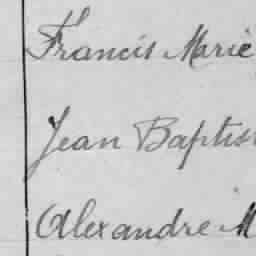 Francis Marie
Jean Baptis
Alexandre M